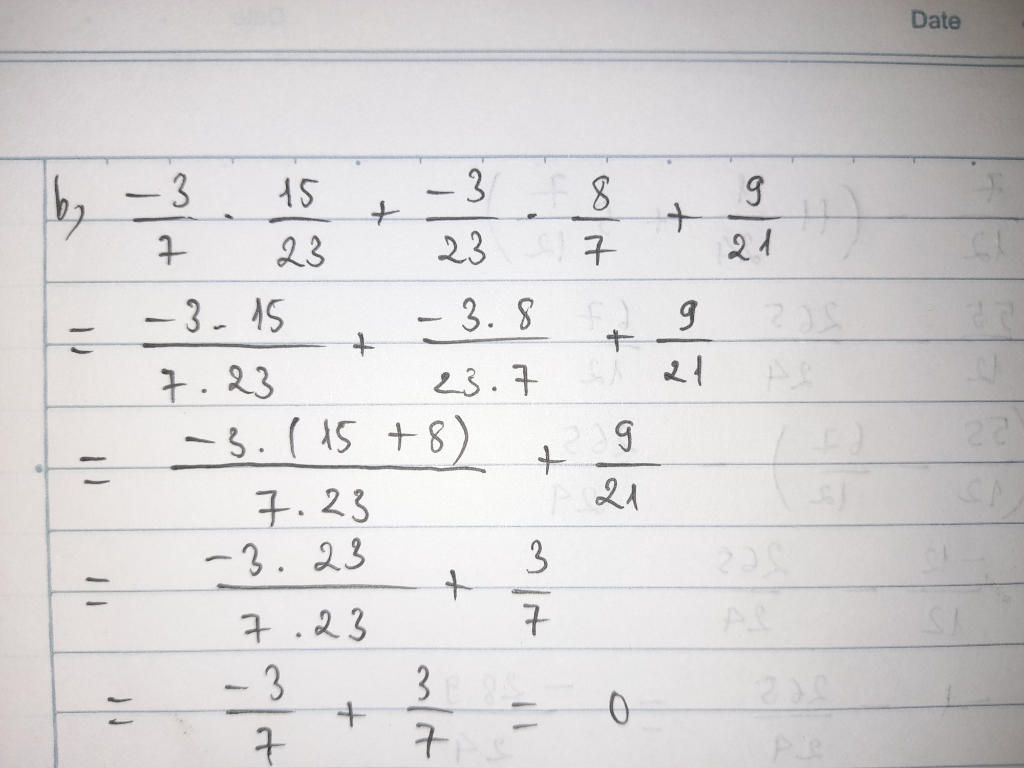 Date
b, -3/7 . 15/23 + -3/23 . 8/7 + 9/21
= -3 - 15 / 7 . 23 + -3 . 8 / 23 . 7 + 9/21
= -3 . (15 + 8) / 7 . 23 + 9/21
= -3 . 23 / 7 . 23 + 3/7
= -3/7 + 3/7 = 0